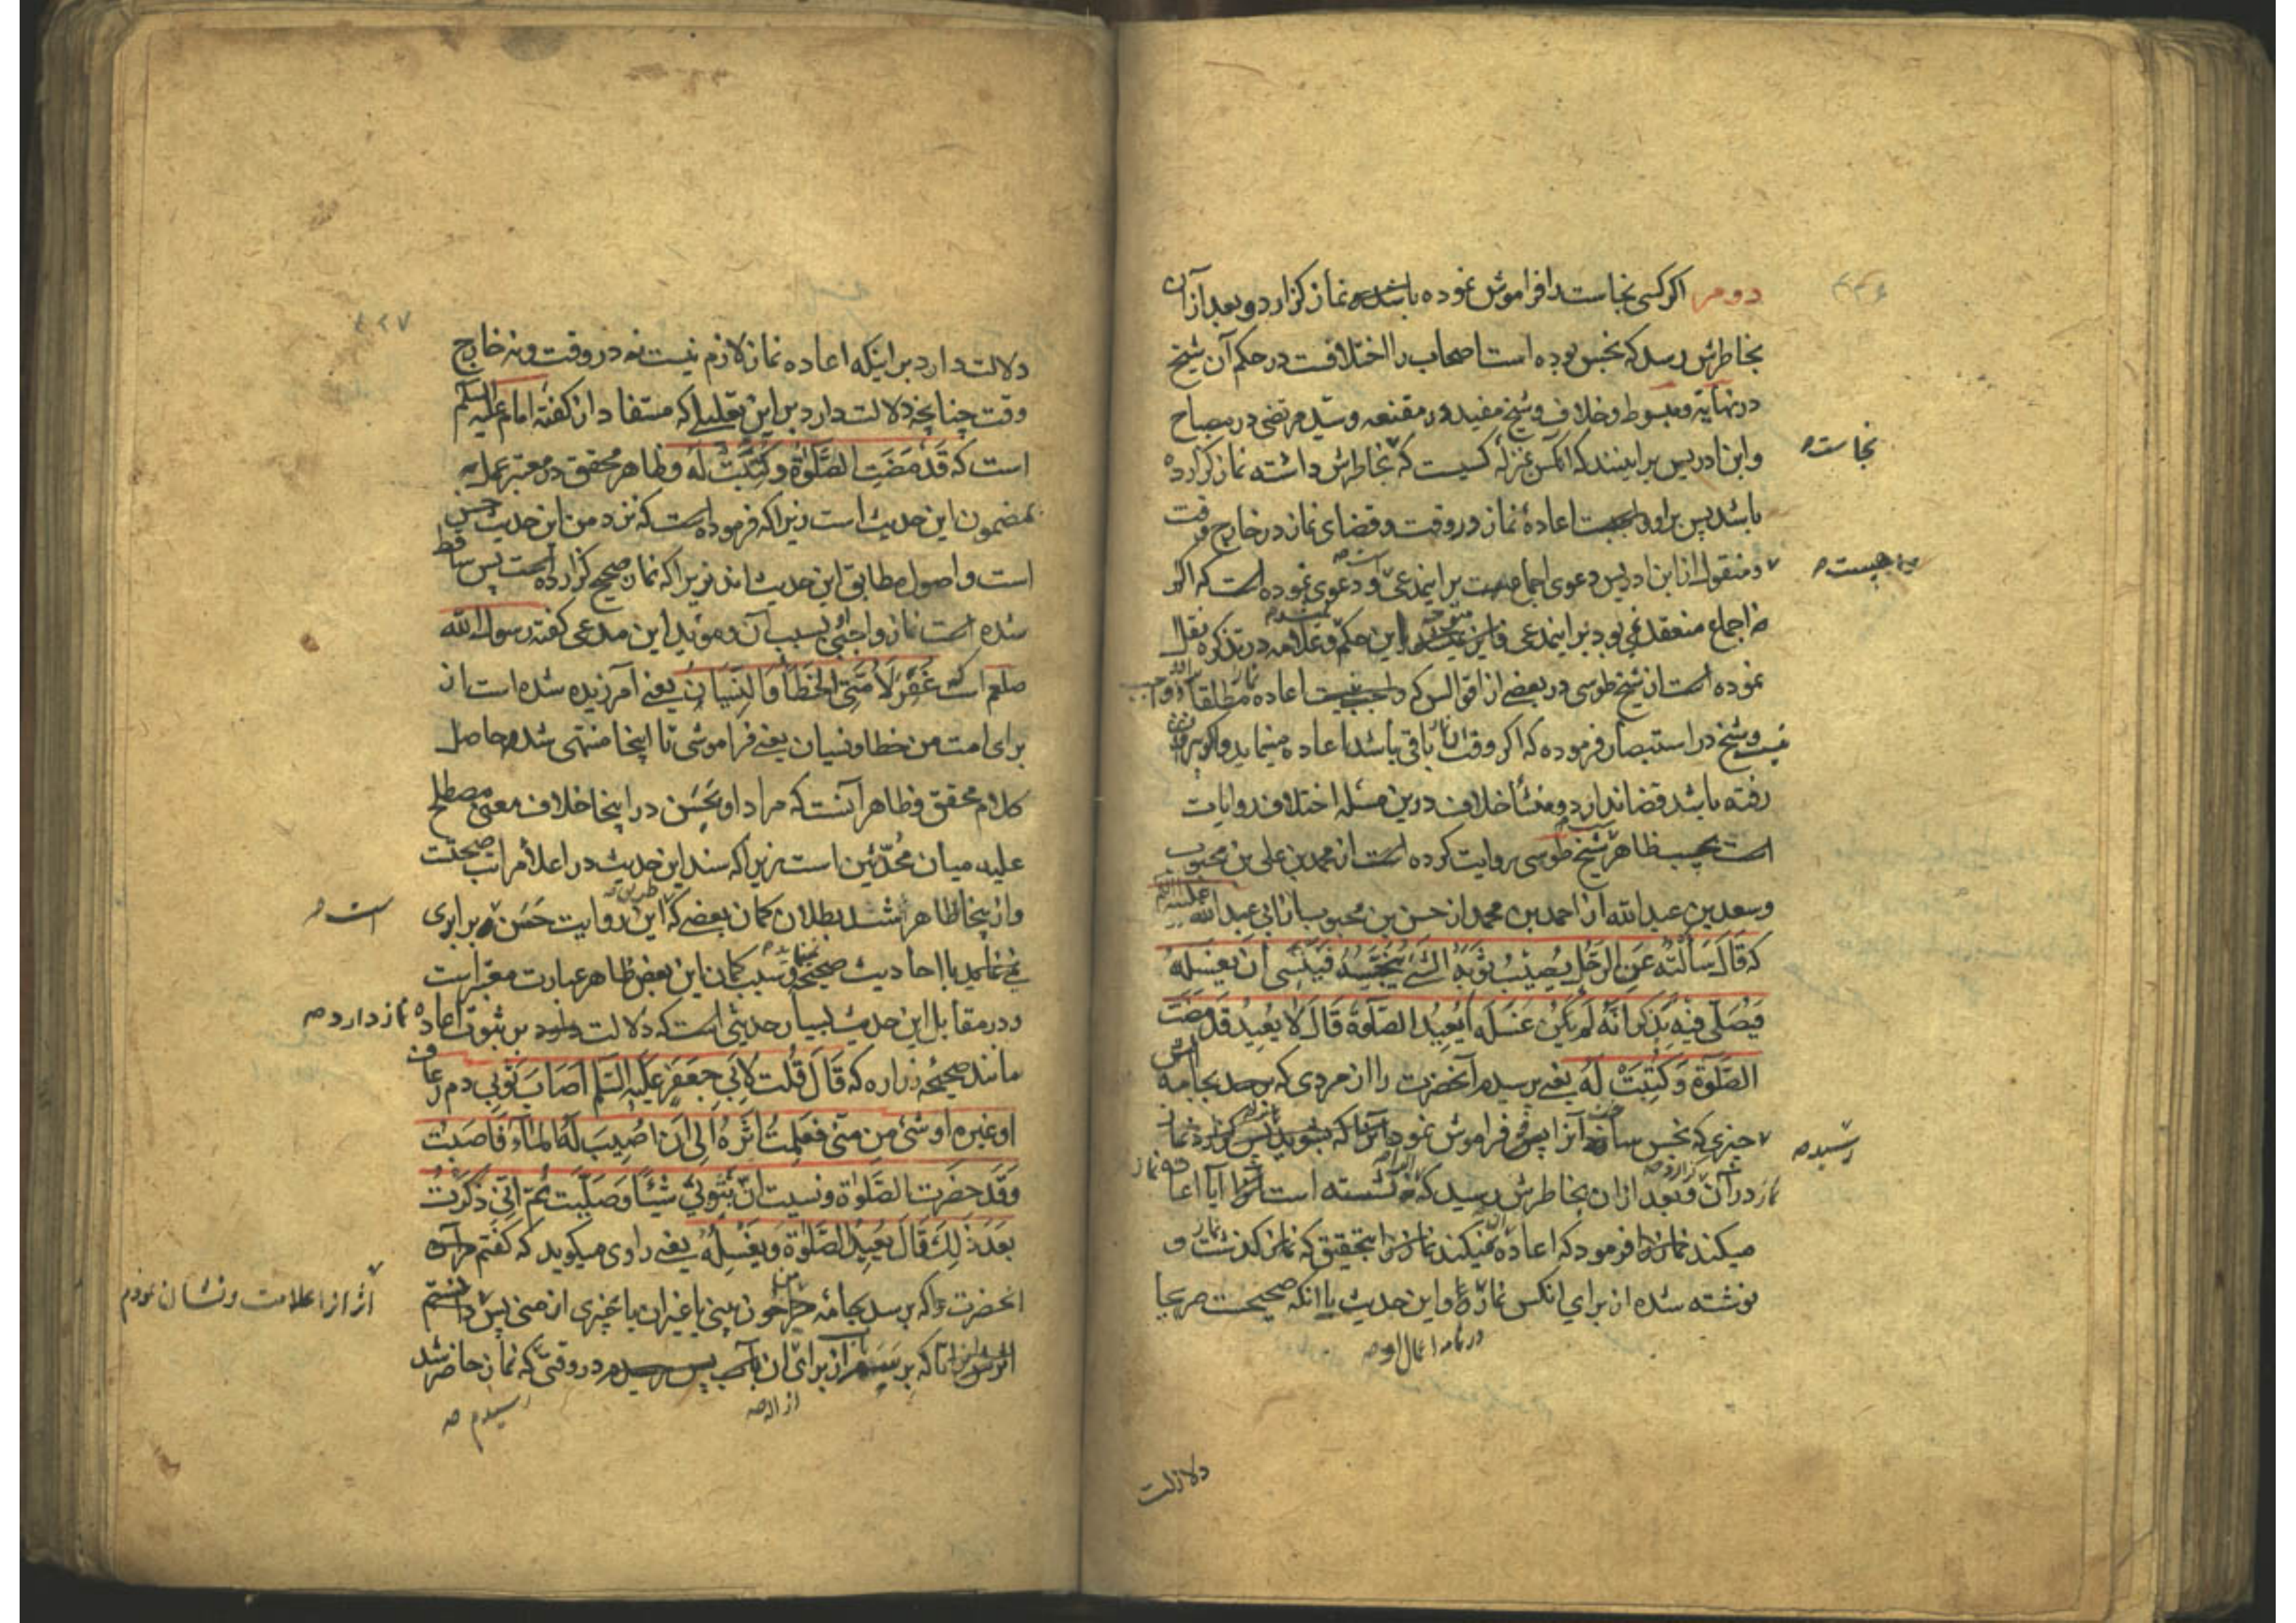 دوم اگر کسی نجاست را فراموش نموده باشد و نماز گزارد و بعد از آن
بخاطرش رسد که نجس بوده است اصحاب را اختلافست در حکم آن شیخ
در نهایة و مبسوط و خلاف و شیخ مفید در مقنعه و سید مرتضی در مصباح
و ابن ادریس براینند که آنکس بمنزلهٔ کسیست که بخاطرش داشته نماز گزارده
نجاست
باشد پس براو واجبست اعادهٔ نماز در وقت و قضای نماز در خارج وقت
و منقول از ابن ادریس دعوی اجماعست برایندعی و دعوی نموده است که اگر
نه اجماع منعقد می بود برایندعی این حکم و علامه در تذکره نقل
نموده است از شیخ طوسی در بعضی از اقوالش که واجب نیست اعاده نماز مطلقا
و شیخ در استبصار فرموده که اگر وقت باقی باشد اعاده مینماید و اگر بیرون
رفته باشد قضا ندارد و منشأ خلاف درین مسله اختلاف روایات
است بحسب ظاهر شیخ طوسی روایت کرده است از محمد بن علی بن محبوب
و سعد بن عبد الله از احمد بن محمد از حسن بن محبوب از ابی عبد الله علیه السلم
که قَالَ سَأَلتُه عَنِ الرَّجُلِ یُصِیْبُ ثَوْبَهُ الشَّئ یُنَجِّسِهُ فَیَنْسٰی اَنْ یَغْسِلَهُ
فَیُصَلّی فیْهِ یَذْکُر اَنَّه لَمْ یَکُنْ غَسَلَه اَیُعِیْدُ الصَّلٰوةَ قَالَ لَا یُعِیدُ قَدْ مَضَتْ
الصَّلٰوةُ وَ کُتِبَتْ لَهُ یعنی پرسیدم آنحضرت را از مردی که برسد بجامه اش
رسیده
چیزی که نجس سازد آنرا پس فراموش نمود که بشوید پس نماز
در آن و بعد از ان بخاطرش رسید که نشسته است آنرا آیا اعاده نماز
میکند فرمود که اعاده نمیکند نماز را بتحقیق که نماز گذشت و
نوشته شده از برای انکس نماز و این حدیث با انکه صحیحست صریحا
در نامه اعمال او
دلالت
۴۲۷
دلالت دارد بر اینکه اعاده نماز لازم نیست نه در وقت و نه خارج
وقت چنانچه دلالت دارد بر این تعلیلی که مستفاد از گفتهٔ امام علیه السلم
است که قَدْ مَضَتِ الصَّلٰوةُ وَ کُتِبَتْ لَهُ و ظاهر محقق در معتبر عمل به
مضمون این حدیث است زیرا که فرموده است که نزد من این حدیث حسن
است و اصول مطابق این حدیث اند زیرا که نماز صحیح گزارده است پس ساقط
شده است نماز واجبی بسبب آن و موید این مدعی گفته رسول الله
صلعم است که غُفِرَ لِاُمَّتِی الخَطَأُ وَ النِّسْیَانُ یعنی آمرزیده شده است از
برای امت من خطا و نسیان یعنی فراموشی تا اینجا منتهی شد حاصل
کلام محقق و ظاهر آنست که مراد او بحَسَن در اینجا خلاف معنی مصطلح
علیه میان مُحدّثین است زیرا که سند این حدیث در اعلا مراتب صحتست
و از اینجا ظاهر شد بطلان گمان بعضی که این روایت حَسَن است برابری
نمی نماید با احادیث صحیحه و سبب گمان این بعض ظاهر عبارت معتبر است
و در مقابل این حدیث بسیار حدیثی است که دلالت دارد بر ثبوت اعاده
نماز دارد
مانند صحیحهٔ زراره که قَالَ قُلت لِاَبِی جَعْفَر عَلَیْهِ السَّلم اَصَابَ ثَوْبِی دم رعاف
او غیره او شَئ مِن مَنی فَعَلِمتُ اَثَرَهُ اِلی اَن اُصِیبَ لَهُ المَاء فَاَصَبْت
وَقَد حَضَرت الصَّلوة و نسیت انّ بثَوبیْ شَیْئًا وَصَلَّیت ثُمّ انّی ذَکَرْتُ
بَعْدَ ذٰلِکَ قَالَ یُعِیدُ الصَّلوةَ وَیَغْسِلهُ یعنی راوی میگوید که گفتم
انحضرت را که برسد بجامهٔ من خون بینی یا غیر ان یا چیزی از منی پس
اثر انرا علامت و نشان نمودم
تا که برسم از برای ان بآب در وقتی که نماز حاضر شد
ازاله
رسیدم